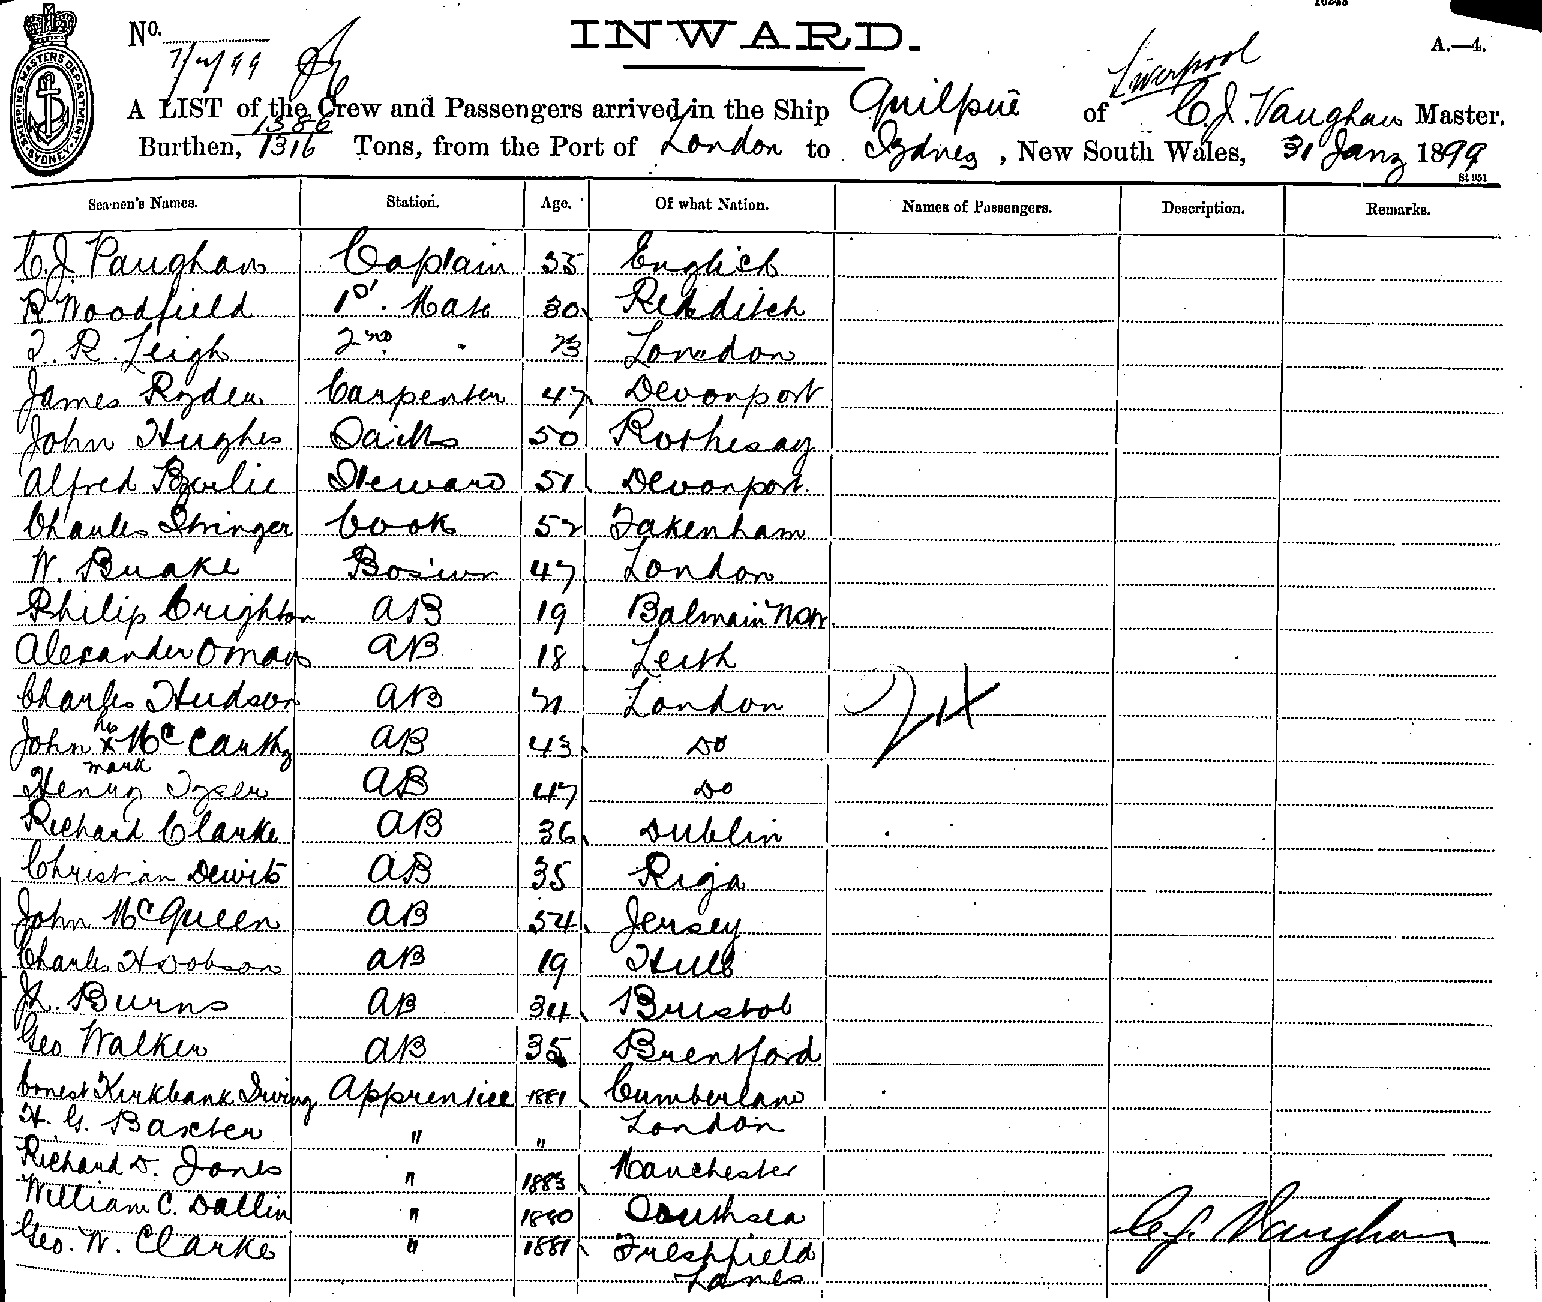 16248
No.
INWARD.
A.—4.
7/2/99
Liverpool
SHIPPING MASTERS DEPARTMENT SYDNEY
A LIST of the Crew and Passengers arrived in the Ship Quilpué of C. J. Vaughan Master,
1386
Burthen, 1316 Tons, from the Port of London to Sydney, New South Wales, 31 Jany 1899
Seamen's Names. Station. Age. Of what Nation. Names of Passengers. Description. Remarks.
C. J. Vaughan Captain 35 English
R Woodfield 1st. Mate 30 Redditch
R. Leigh 2nd " 23 London
James Ryder Carpenter 47 Devonport
John Hughes Sails 50 Rothesay
Alfred Steward 51 Devonport.
Charles Stringer Cook 52 Fakenham
W. Bosiun 47 London
Philip Crighton AB 19 Balmain NSW
Alexander Oman AB 18 Leith
Charles Hudson AB 21 London
John his x mark McCarthy AB 43 Do
Henry AB 47 Do
Richard Clarke AB 36 Dublin
Christian Dewits AB 35 Riga
John McQueen AB 54 Jersey
Charles H Dobson AB 19 Hull
Burns AB 34 Bristol
Geo Walker AB 35 Brentford
Ernest Kirkbank Irving Apprentice 1881 Cumberland
H. G. Baxter " " London
Richard D. Jones " 1883 Manchester
William C. Dallin " 1880 Southsea
Geo. W. Clarke " 1881 Freshfield
Lancs
C. J. Vaughan